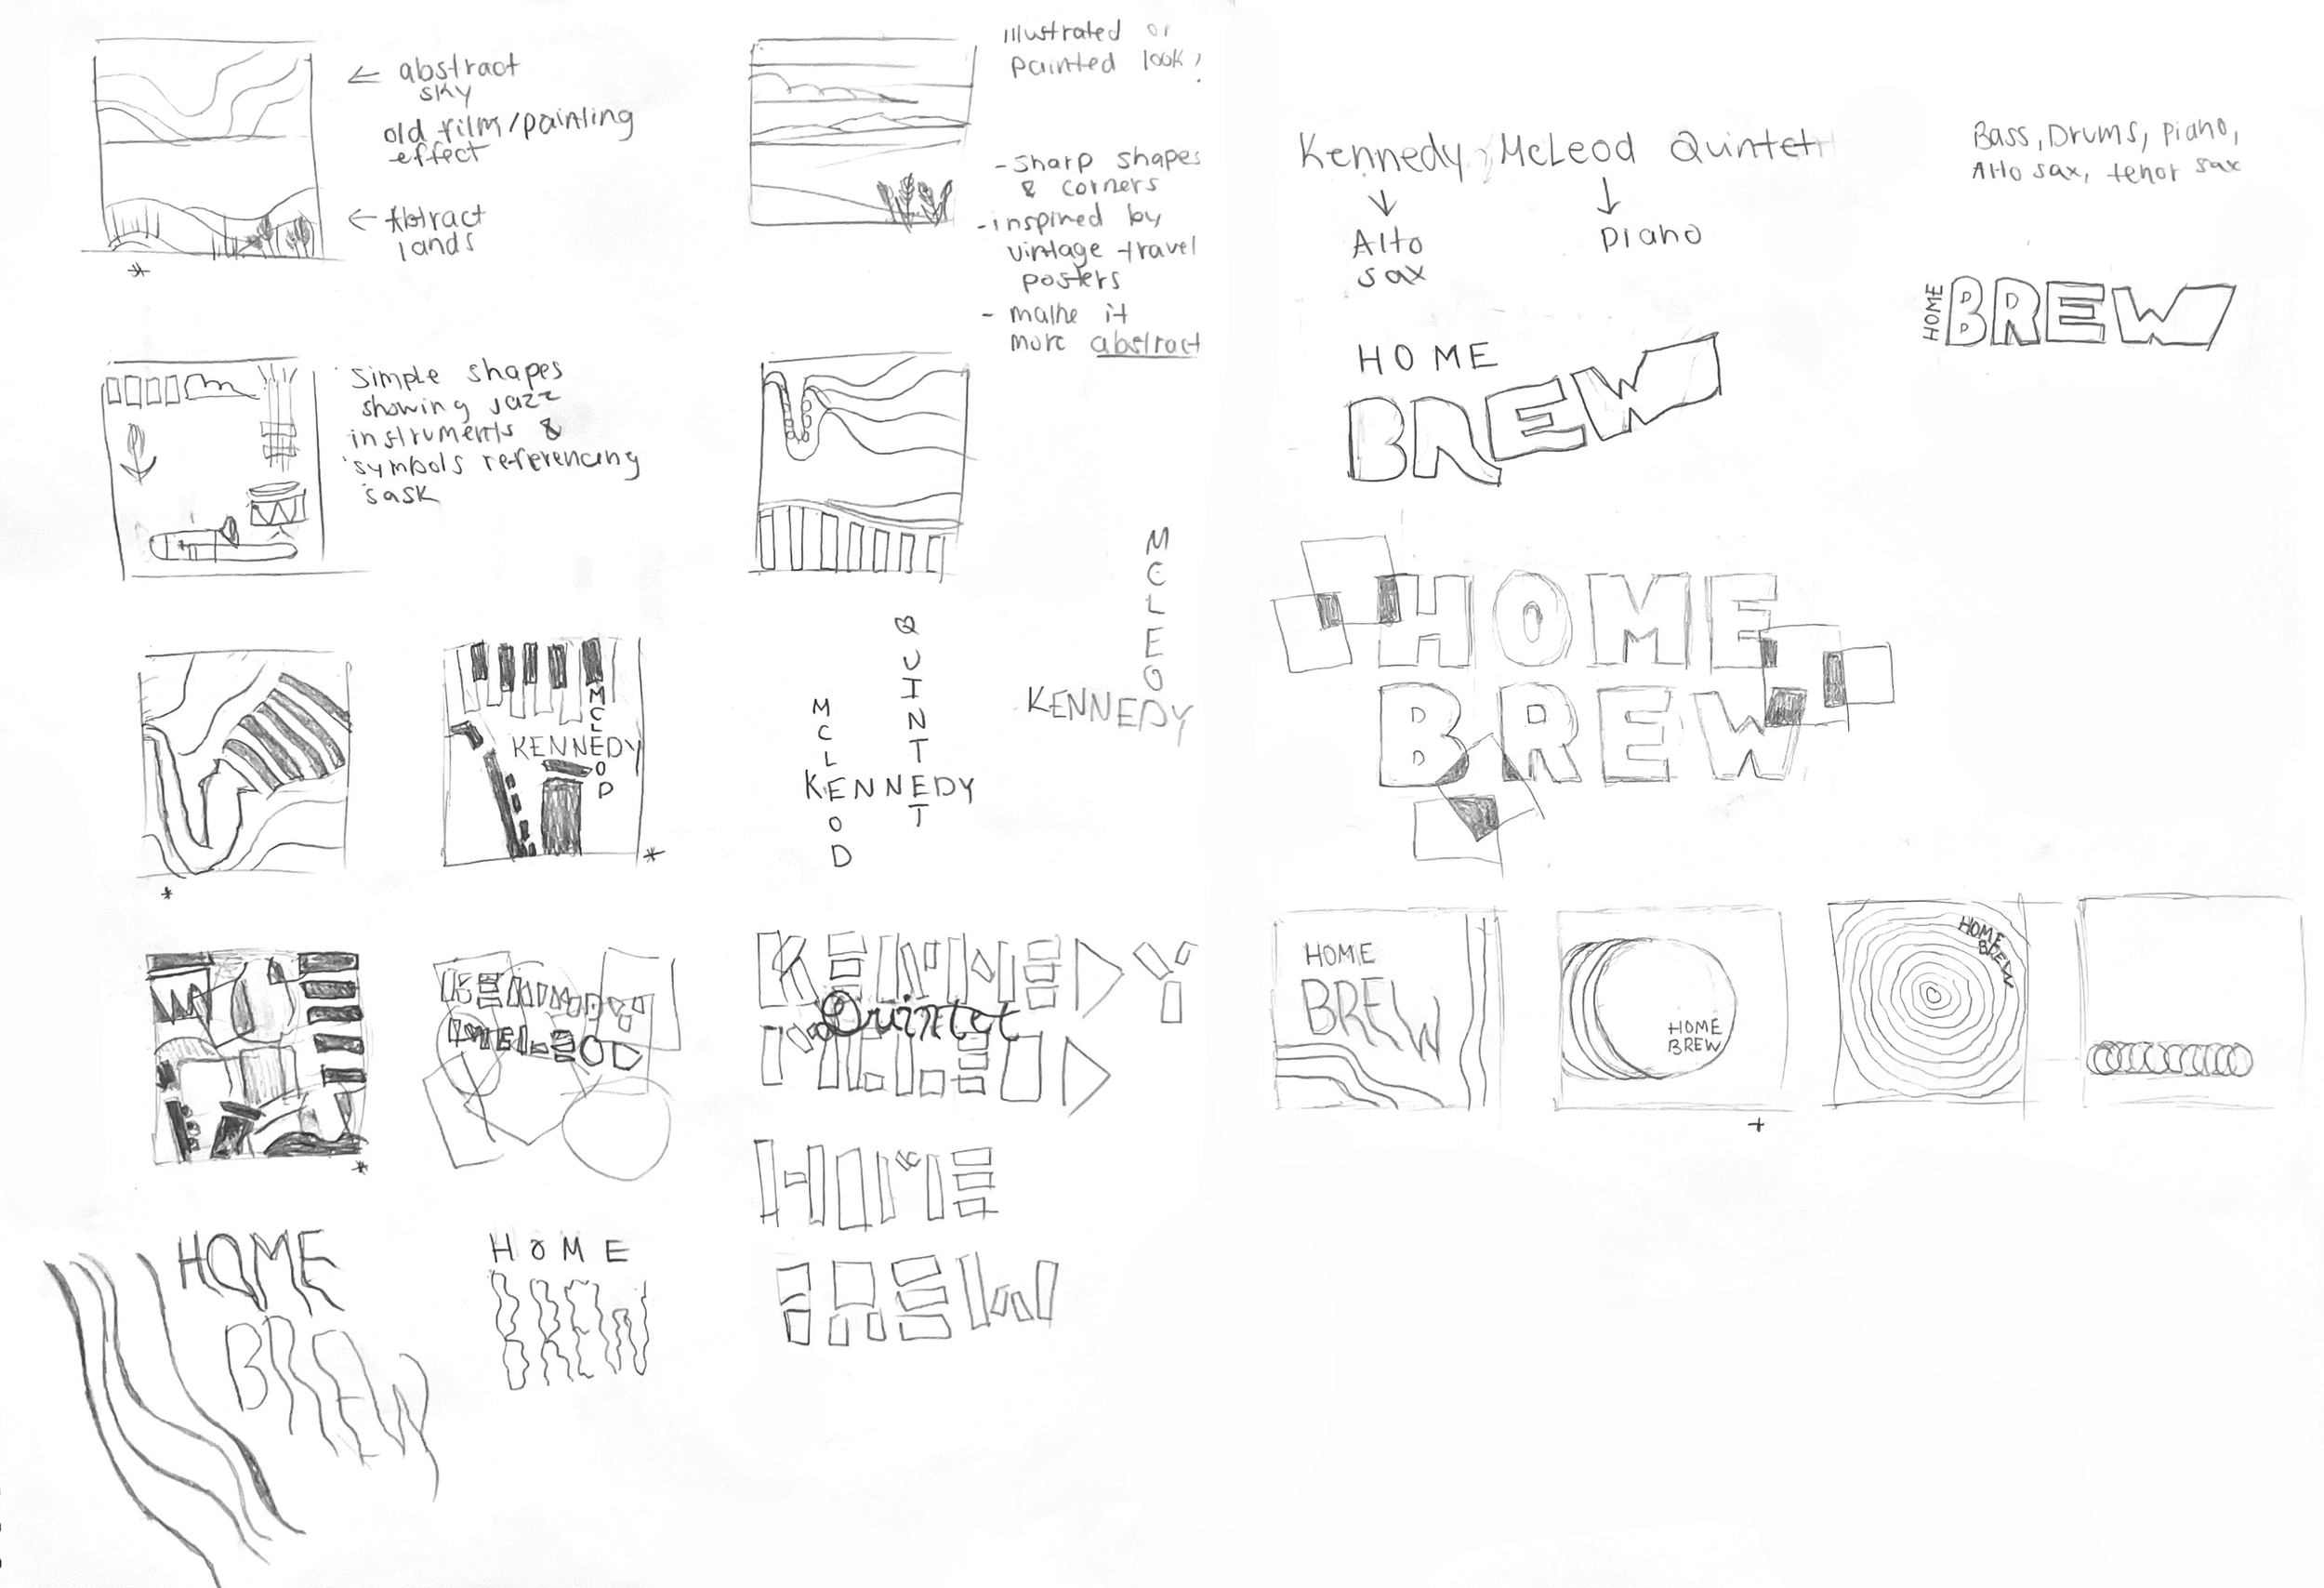 abstract
sky
old film/painting
effect
abtract
lands
Illustrated or
painted look?
- sharp shapes
& corners
- inspired by
vintage travel
posters
- make it
more abstract
Simple shapes
showing jazz
instruments &
symbols referencing
sask
MCLEOD
KENNEDY
MCLEOD
QUINTET
KENNEDY
MCLEOD
KENNEDY
KENNEDY
MCLEOD
KENNEDY
Quintet
MCLEOD
HOME
BREW
HOME
BREW
HOME
BREW
Kennedy, McLeod Quintet
Alto
sax
piano
Bass, Drums, piano,
Alto sax, tenor sax
HOME
BREW
HOME
BREW
HOME
BREW
HOME
BREW
HOME
BREW
HOME
BREW